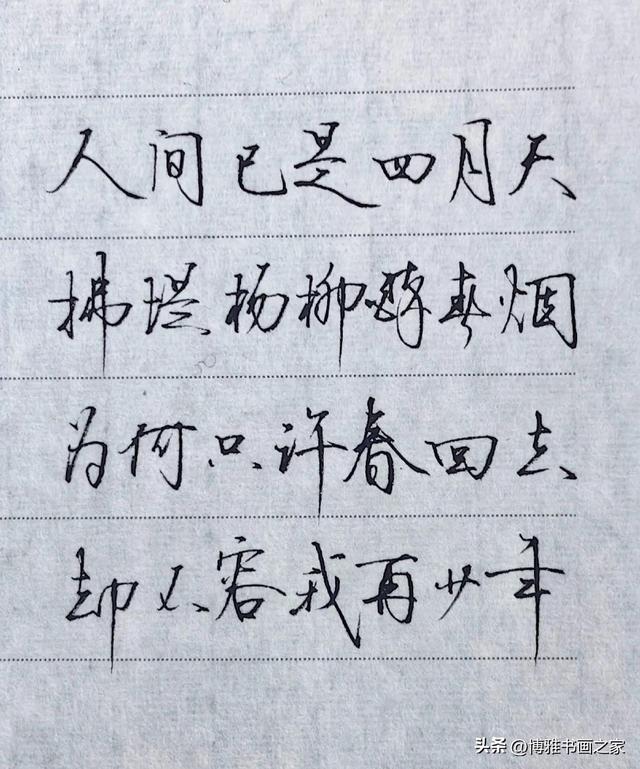 人间已是四月天
拂堤杨柳醉春烟
为何只许春回去
却不容我再少年
头条 @博雅书画之家